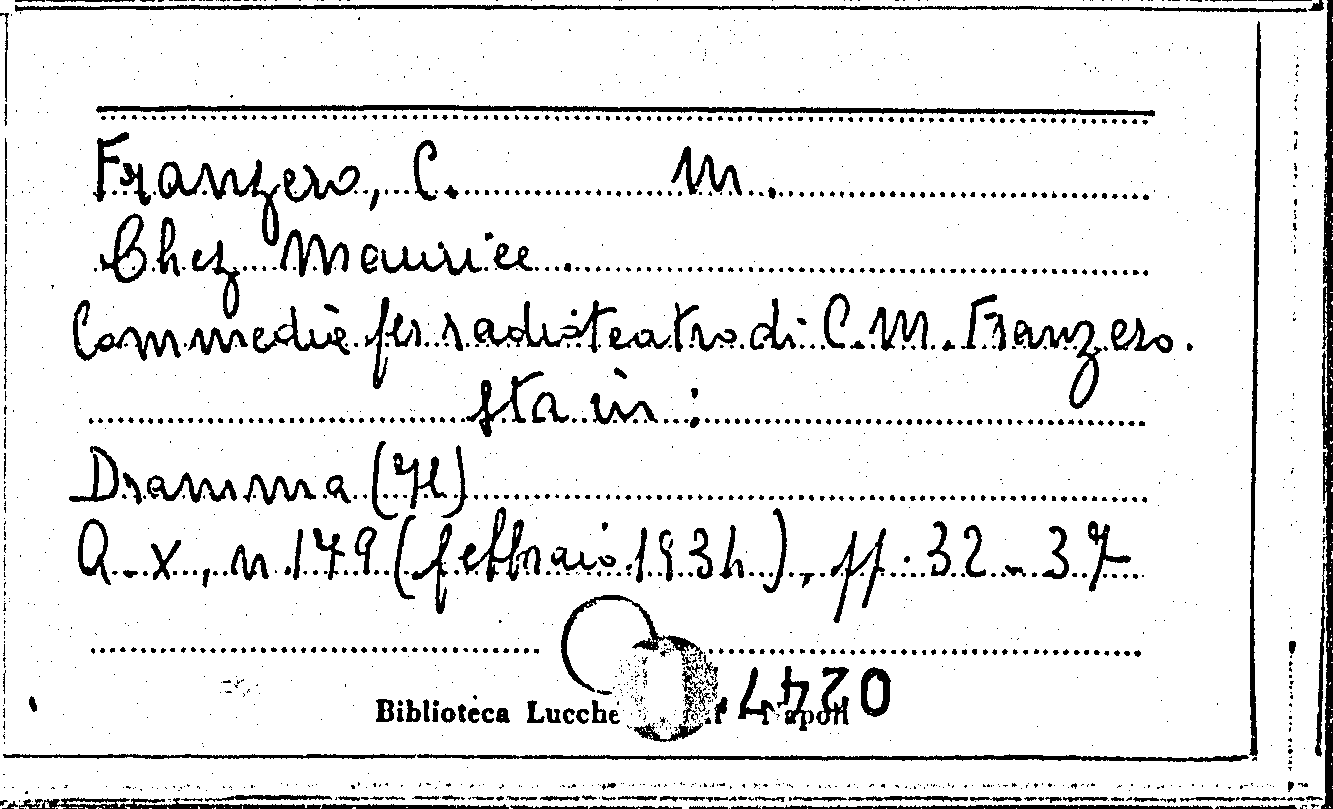 Franzero, C. M.
Chez Maurice.
Commedia per radioteatro di C. M. Franzero.
sta in:
Dramma (Il)
A. X, n. 179 (febbraio 1934), pp. 32-37
Biblioteca Lucche